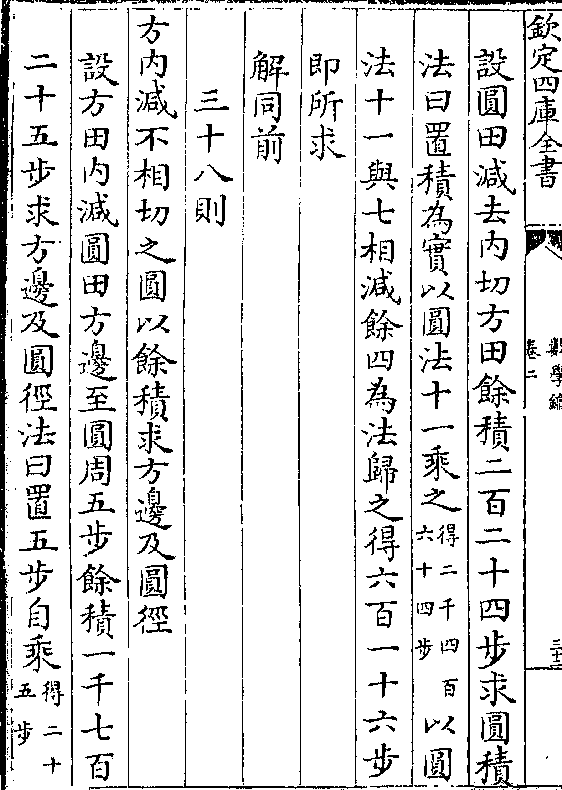 欽定四庫全書
卷二
三十三
設圓田減去内切方田餘積二百二十四步求圓積
法曰置積為實以圓法十一乘之得二千四百六十四步以圓
法十一與七相減餘四為法歸之得六百一十六步
即所求
解同前
三十八則
方内減不相切之圓以餘積求方邊及圓徑
設方田内減圓田方邊至圓周五步餘積一千七百
二十五步求方邊及圓徑法曰置五步自乘得二十五步